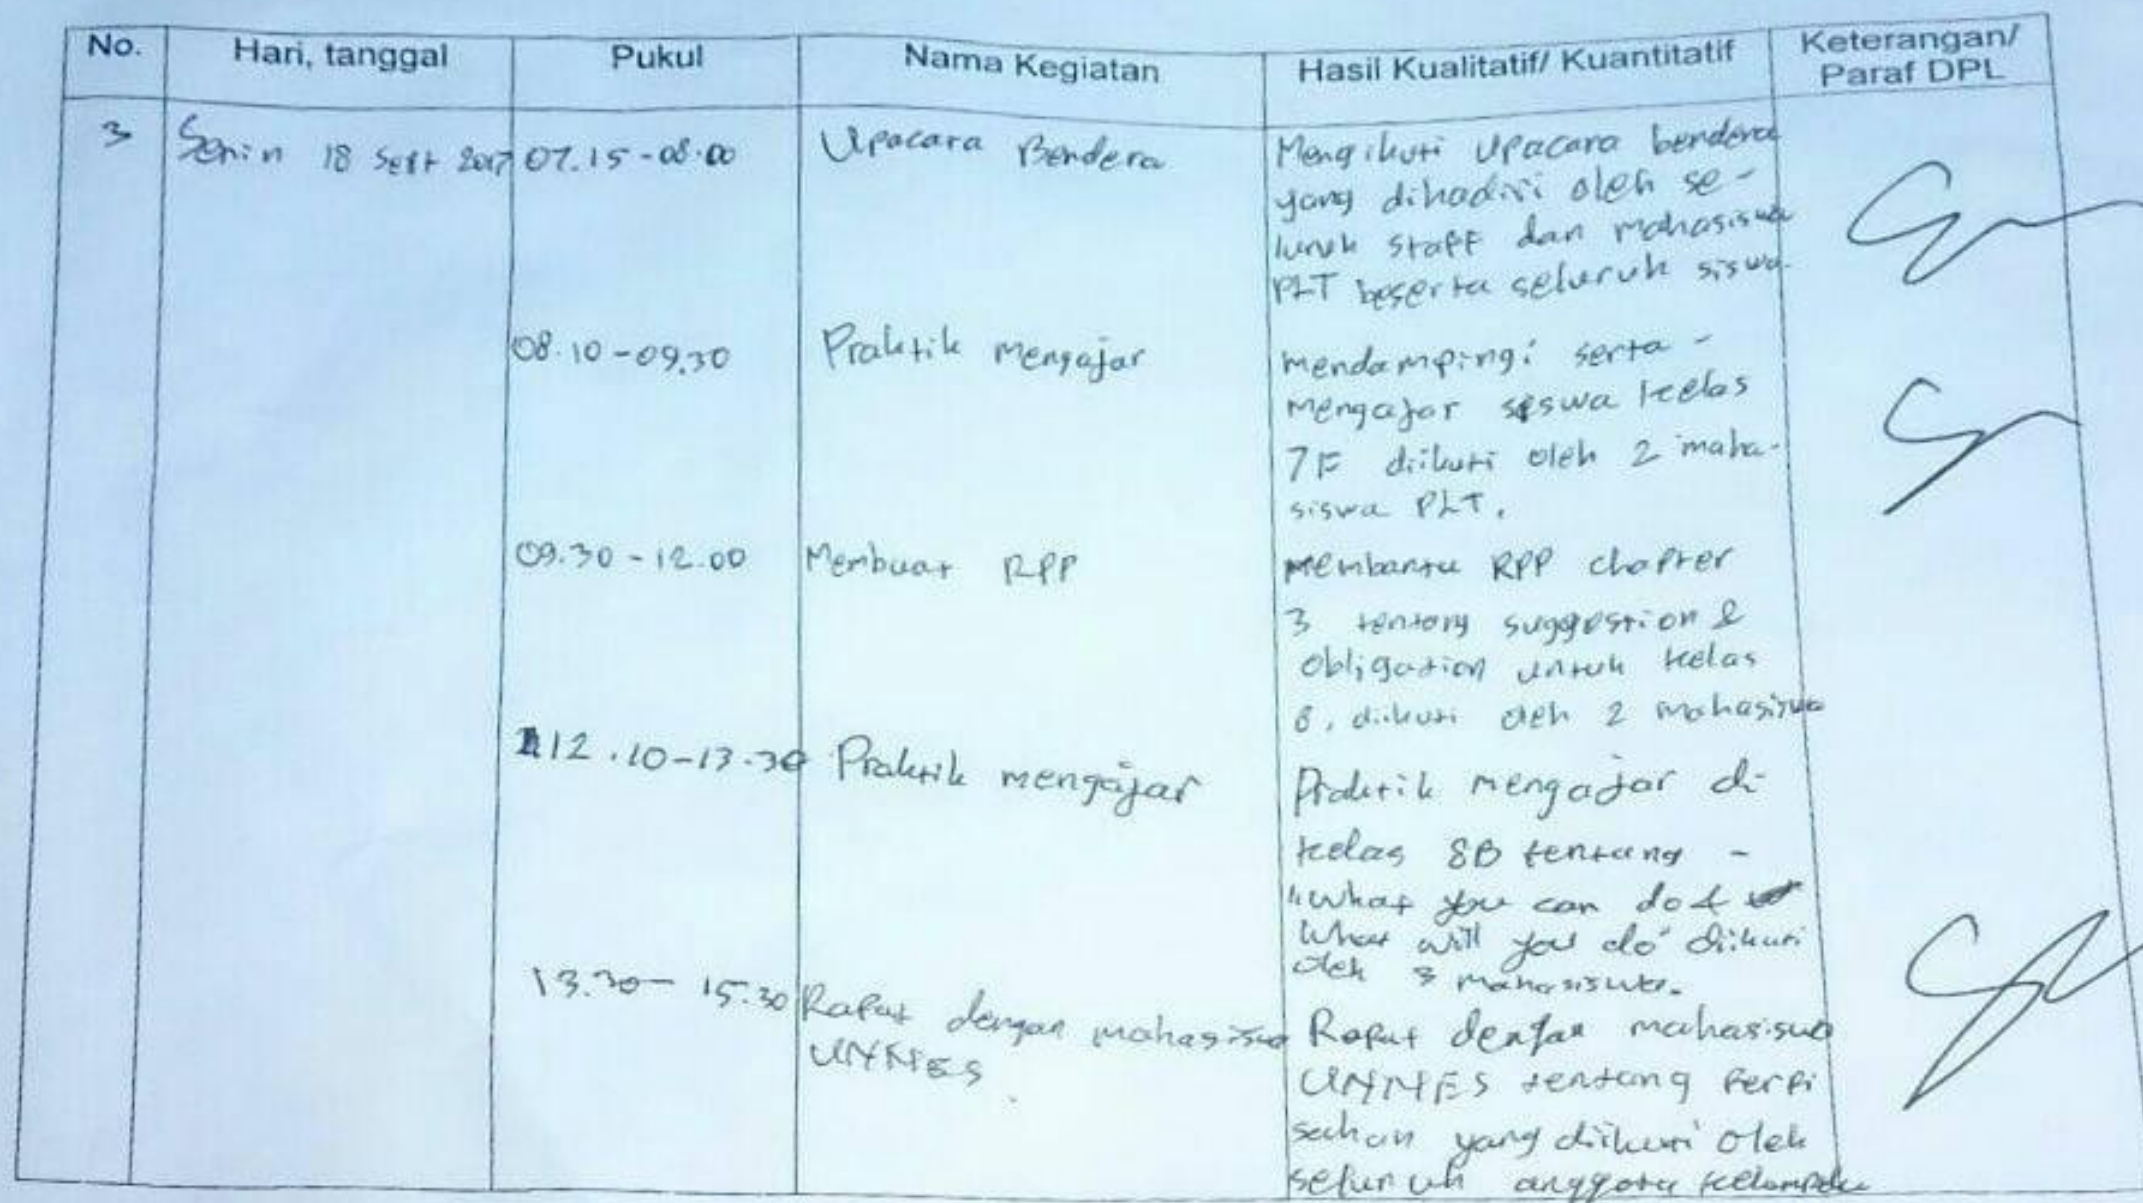 No. Hari, tanggal Pukul Nama Kegiatan Hasil Kualitatif/ Kuantitatif Keterangan/
Paraf DPL
3 Senin 18 Sept 2017 07.15-08.00 Upacara Bendera Mengikuti Upacara bendera
yang dihadiri oleh se-
luruh staff dan mahasiswa
PLT beserta seluruh siswa.
08.10-09.30 Praktik mengajar mendampingi serta -
mengajar siswa kelas
7F diikuti oleh 2 maha-
siswa PLT.
09.30-12.00 Membuat RPP membantu RPP chapter
3 tentang suggestion &
obligation untuk kelas
8, diikuti oleh 2 mahasiswa
12.10-13.30 Praktik mengajar Praktik mengajar di-
kelas 8B tentang -
"What you can do &
What will you do" diikuti
oleh 3 mahasiswa.
13.30-15.30 Rapat dengan mahasiswa Rapat dengan mahasiswa
UNNES UNNES tentang perpi
sahan yang diikuti oleh
seluruh anggota kelompok